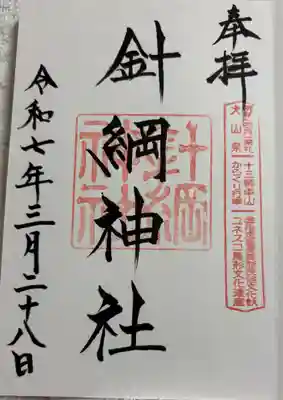 奉拝
犬山祭
十三輌車山
からくり
ユネスコ無形文化遺産
針綱神社
針綱神社
令和七年三月二十八日